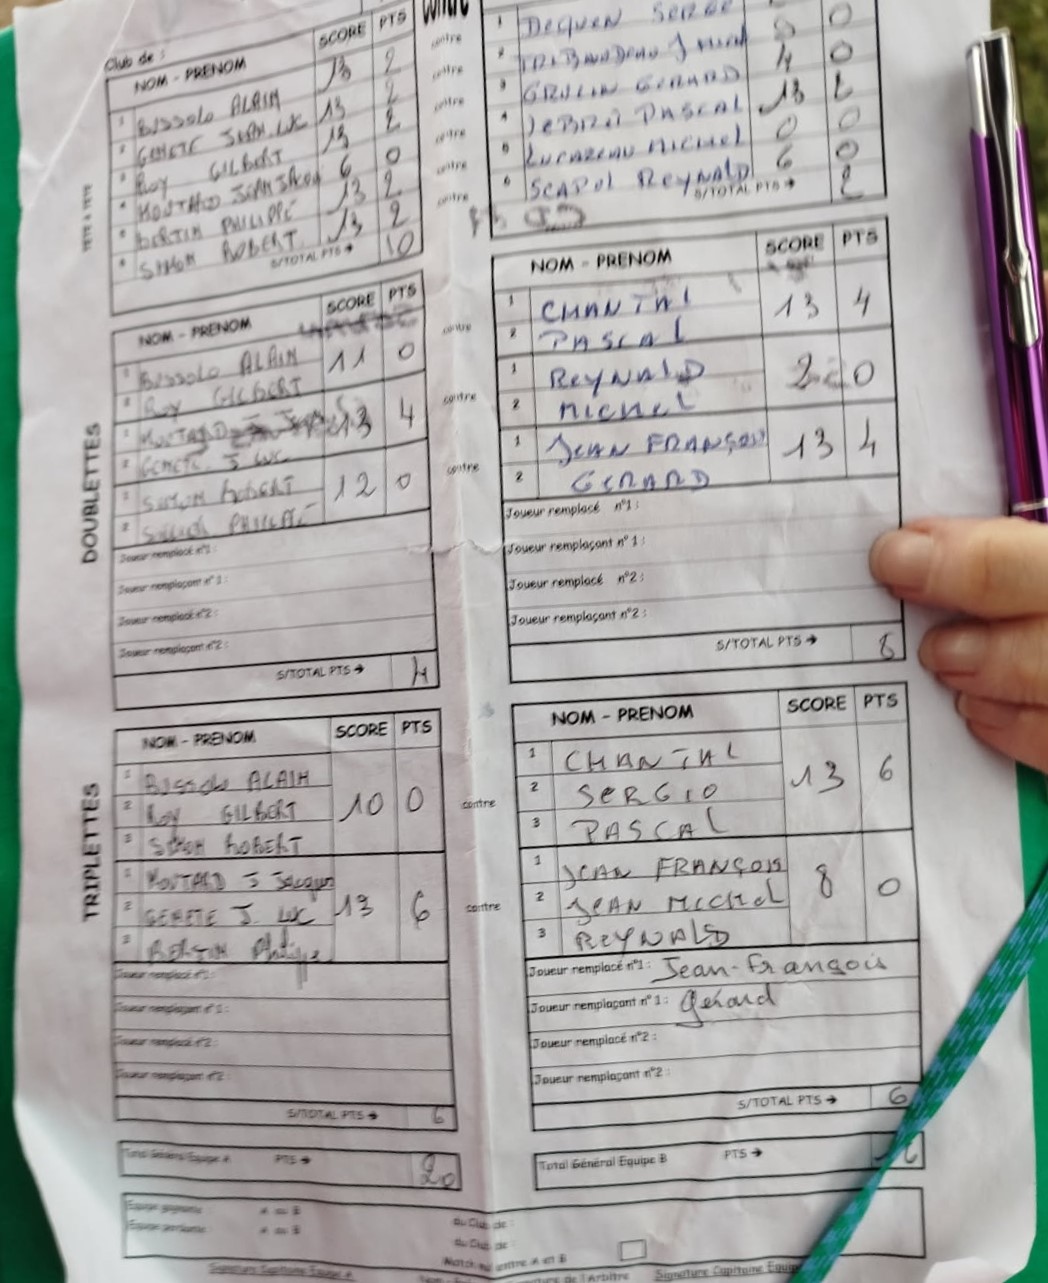 Club de :
NOM - PRENOM SCORE PTS
1 BISSOLO ALAIN 13 2
GENETE JEAN.LUC 13 2
ROY GILBERT 13 2
6 0
BERTIN PHILIPPE 13 2
SIMON ROBERT 13 2
S/TOTAL PTS → 10
TETE A TETE
contre
contre
contre
contre
contre
contre
contre
1 DEQUEN SERGE 0
0
GERARD 4 0
PASCAL 13 2
MICHEL 0 0
6 REYNALD 6 0
S/TOTAL PTS → 2
DOUBLETTES
NOM - PRENOM SCORE PTS
1 BISSOLO ALAIN 11 0
2 ROY GILBERT
1 13 4
2 GENETE. J LUC
1 SIMON ROBERT 12 0
2 PHILIPPE
Joueur remplacé n°1 :
Joueur remplaçant n° 1 :
Joueur remplacé n°2 :
Joueur remplaçant n°2 :
S/TOTAL PTS → 4
contre
contre
contre
NOM - PRENOM SCORE PTS
1 CHANTAL 13 4
2 PASCAL
1 REYNALD 2 0
2 MICHEL
1 JEAN FRANÇOIS 13 4
2 GERARD
Joueur remplacé n°1 :
Joueur remplaçant n° 1 :
Joueur remplacé n°2 :
Joueur remplaçant n°2 :
S/TOTAL PTS → 8
TRIPLETTES
NOM - PRENOM SCORE PTS
1 BISSOLO ALAIN 10 0
2 ROY GILBERT
3 SIMON ROBERT
1 MOUTARD J Jacques 13 6
2 GENETE J. LUC
3 BERTIN Philippe
Joueur remplacé n°1 :
Joueur remplaçant n° 1 :
Joueur remplacé n°2 :
Joueur remplaçant n°2 :
S/TOTAL PTS → 6
contre
contre
NOM - PRENOM SCORE PTS
1 CHANTAL 13 6
2 SERGIO
3 PASCAL
1 JEAN FRANÇOIS 8 0
2 JEAN MICHEL
3 REYNALD
Joueur remplacé n°1 : Jean-François
Joueur remplaçant n° 1 : Gérard
Joueur remplacé n°2 :
Joueur remplaçant n°2 :
S/TOTAL PTS → 6
Total Général Equipe A PTS → 20
Total Général Equipe B PTS →
Equipe gagnante : A ou B du Club de :
Equipe perdante : A ou B du Club de :
Match nul entre A et B
Signature Capitaine Equipe A
Signature Capitaine Equipe